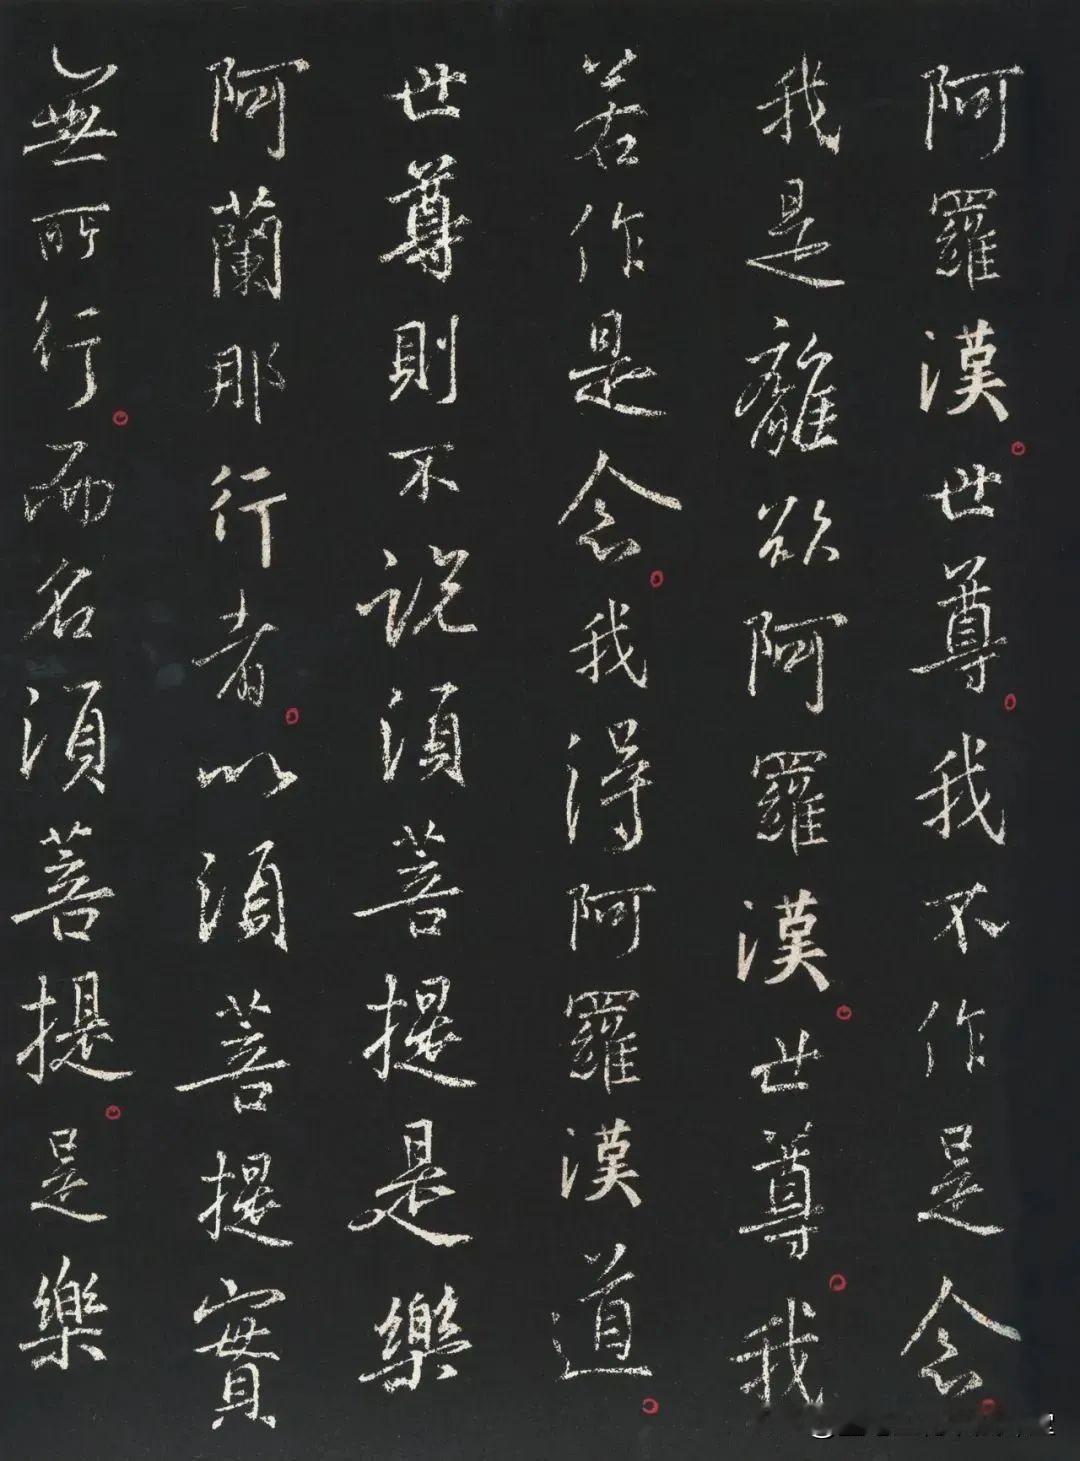 阿羅漢世尊我不作是念
我是離欲阿羅漢世尊我
若作是念我得阿羅漢道
世尊則不説須菩提是樂
阿蘭那行者以須菩提實
無所行而名須菩提是樂